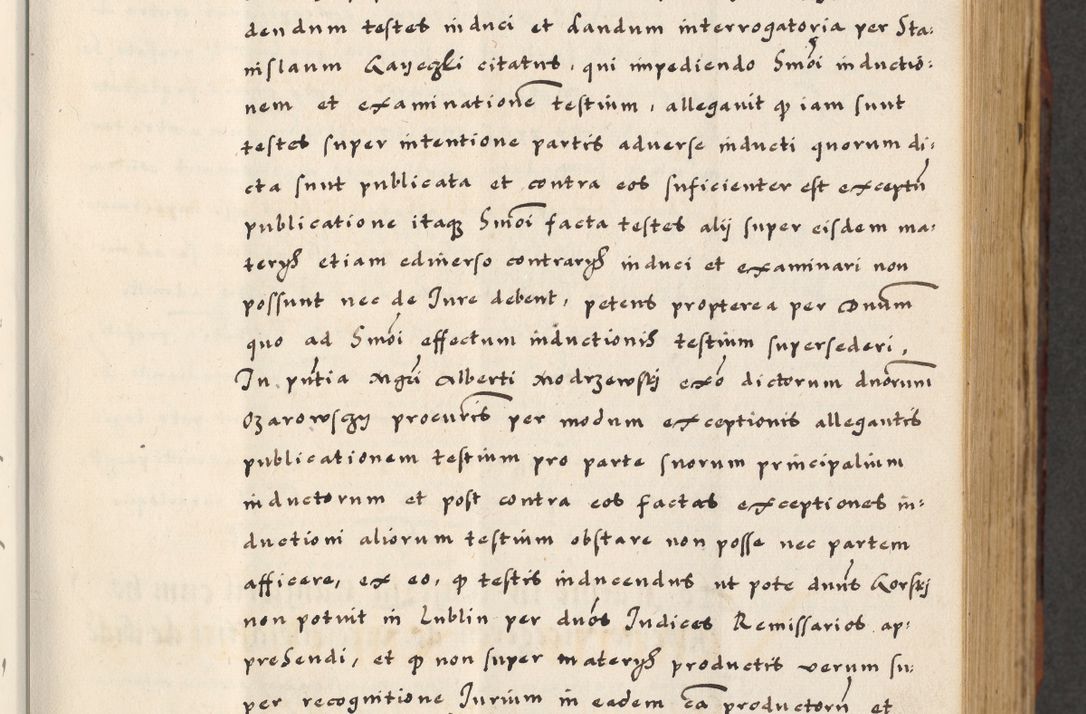 dendum testes induci et dandum interrogatoria per Sta:
nislaum Gayeczki citatus, qui impediendo Smōi inductio:
nem et examinationē testium, allegauit ꝙ iam sunt
testes super intentione partis aduerse inducti quorum di:
cta sunt publicata et contra eos suficienter est exceptū
publicatione itaqꝫ Smōi facta testes alij super eisdem ma:
teryß etiam ediuerso contraryß induci et examinari non
possunt nec de Iure debent, petens propterea per Dnum
quo ad Smōi effectum inductioniß testium supersederi,
In pn̄tia Mgr̄i Alberti Modrzewskj exō dictorum dnōrum
Ozarowsczy procur̄is per modum exceptionis allegantis
publicationem testium pro parte suorum principalium
inductorum et post contra eos factas exceptiones in:
ductioni aliorum testium obstare non posse nec partem
afficere, ex eo, ꝙ testis inducendus ut pote dnūs Gorskj
non potuit in Lublin per dnōs Iudices Remissarios ap:
prehendi, et ꝙ non super materyß productis verum su:
per recognitione Iurium in eadem cā productorū et